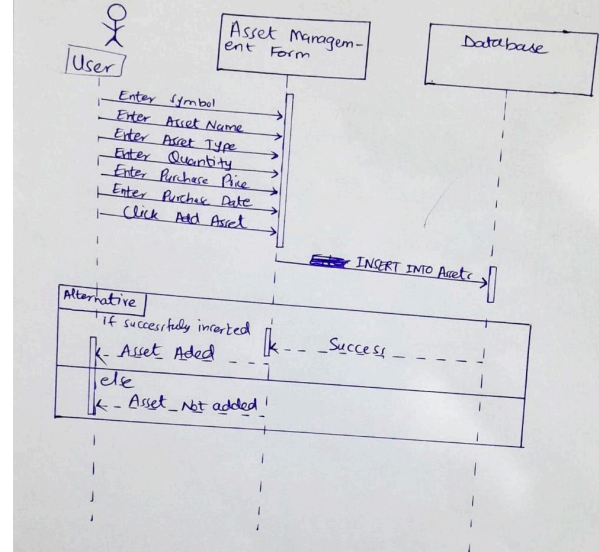 User
Asset Managem-
ent Form
Database
Enter Symbol
Enter Asset Name
Enter Asset Type
Enter Quantity
Enter Purchase Price
Enter Purchase Date
Click Add Asset
INSERT INTO Assets
Alternative
if successfully inserted
Success
Asset Aded
else
Asset Not added